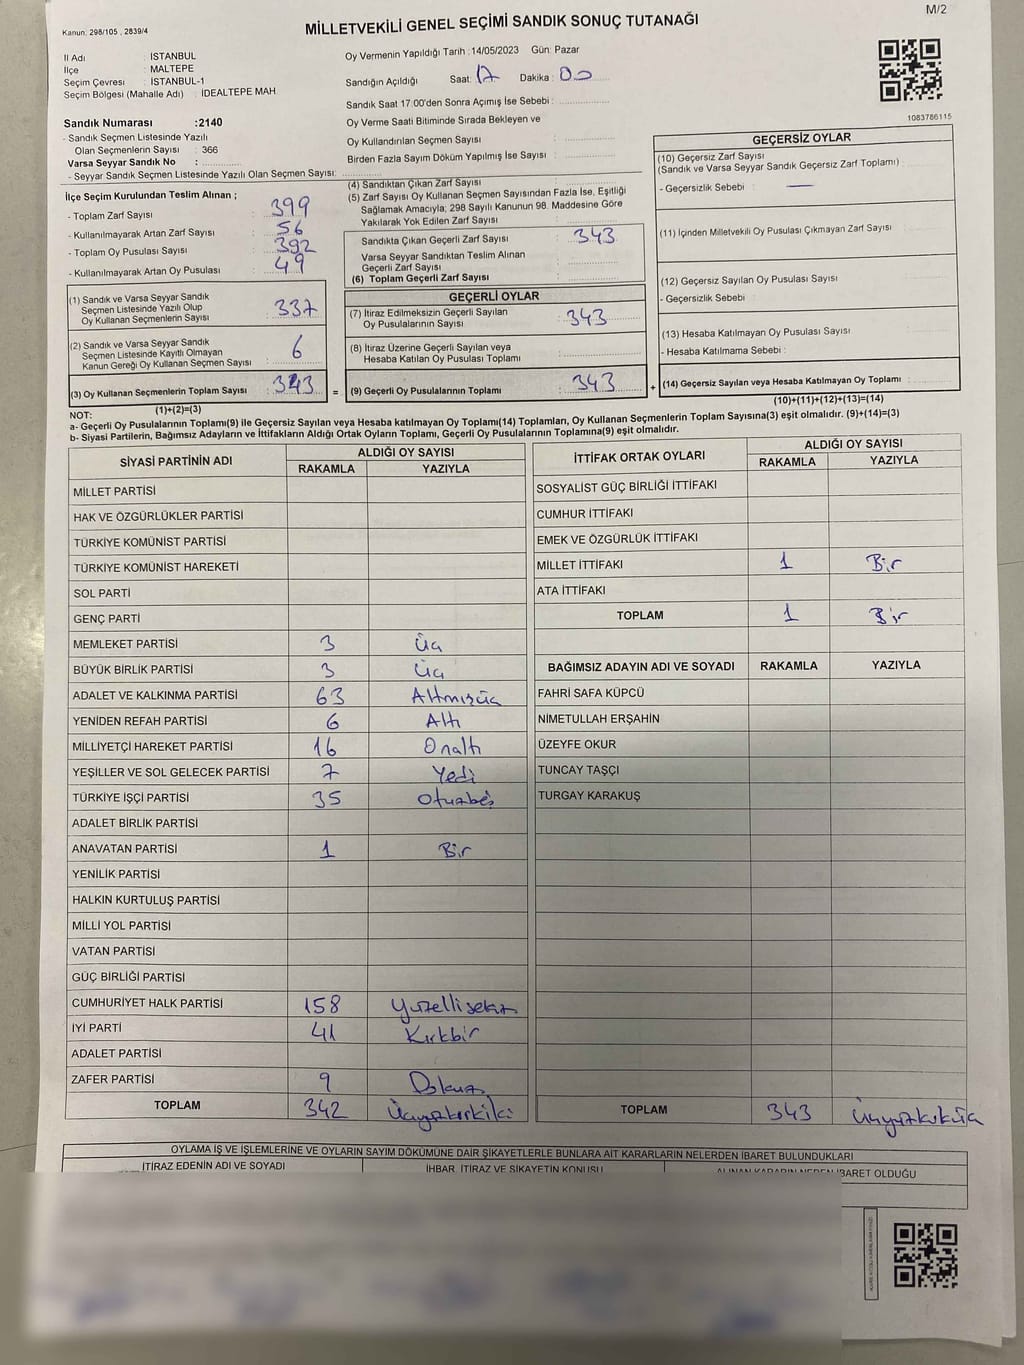 M/2
Kanun: 298/105 , 2839/4
MİLLETVEKİLİ GENEL SEÇİMİ SANDIK SONUÇ TUTANAĞI
İl Adı : İSTANBUL
İlçe : MALTEPE
Seçim Çevresi : İSTANBUL-1
Seçim Bölgesi (Mahalle Adı) : İDEALTEPE MAH.
Oy Vermenin Yapıldığı Tarih :14/05/2023 Gün: Pazar
Sandığın Açıldığı Saat: 17 Dakika : 00
Sandık Saat 17:00'den Sonra Açımış İse Sebebi :
Oy Verme Saati Bitiminde Sırada Bekleyen ve
Oy Kullandırılan Seçmen Sayısı :
Birden Fazla Sayım Döküm Yapılmış İse Sayısı :
1083786115
Sandık Numarası :2140
- Sandık Seçmen Listesinde Yazılı
Olan Seçmenlerin Sayısı : 366
Varsa Seyyar Sandık No :
- Seyyar Sandık Seçmen Listesinde Yazılı Olan Seçmen Sayısı:
İlçe Seçim Kurulundan Teslim Alınan ;
- Toplam Zarf Sayısı : 399
- Kullanılmayarak Artan Zarf Sayısı : 56
- Toplam Oy Pusulası Sayısı : 392
- Kullanılmayarak Artan Oy Pusulası : 49
(1) Sandık ve Varsa Seyyar Sandık
Seçmen Listesinde Yazılı Olup
Oy Kullanan Seçmenlerin Sayısı : 337
(2) Sandık ve Varsa Seyyar Sandık
Seçmen Listesinde Kayıtlı Olmayan
Kanun Gereği Oy Kullanan Seçmen Sayısı : 6
(3) Oy Kullanan Seçmenlerin Toplam Sayısı : 343 =
(1)+(2)=(3)
(4) Sandıktan Çıkan Zarf Sayısı :
(5) Zarf Sayısı Oy Kullanan Seçmen Sayısından Fazla İse, Eşitliği
Sağlamak Amacıyla; 298 Sayılı Kanunun 98. Maddesine Göre
Yakılarak Yok Edilen Zarf Sayısı :
Sandıkta Çıkan Geçerli Zarf Sayısı : 343
Varsa Seyyar Sandıktan Teslim Alınan
Geçerli Zarf Sayısı :
(6) Toplam Geçerli Zarf Sayısı :
GEÇERLİ OYLAR
(7) İtiraz Edilmeksizin Geçerli Sayılan
Oy Pusulalarının Sayısı : 343
(8) İtiraz Üzerine Geçerli Sayılan veya
Hesaba Katılan Oy Pusulası Toplamı :
(9) Geçerli Oy Pusulalarının Toplamı : 343 +
GEÇERSİZ OYLAR
(10) Geçersiz Zarf Sayısı
(Sandık ve Varsa Seyyar Sandık Geçersiz Zarf Toplamı) :
- Geçersizlik Sebebi : —
(11) İçinden Milletvekili Oy Pusulası Çıkmayan Zarf Sayısı :
(12) Geçersiz Sayılan Oy Pusulası Sayısı :
- Geçersizlik Sebebi :
(13) Hesaba Katılmayan Oy Pusulası Sayısı :
- Hesaba Katılmama Sebebi :
(14) Geçersiz Sayılan veya Hesaba Katılmayan Oy Toplamı :
(10)+(11)+(12)+(13)=(14)
NOT:
a- Geçerli Oy Pusulalarının Toplamı(9) ile Geçersiz Sayılan veya Hesaba katılmayan Oy Toplamı(14) Toplamları, Oy Kullanan Seçmenlerin Toplam Sayısına(3) eşit olmalıdır. (9)+(14)=(3)
b- Siyasi Partilerin, Bağımsız Adayların ve İttifakların Aldığı Ortak Oyların Toplamı, Geçerli Oy Pusulalarının Toplamına(9) eşit olmalıdır.
SİYASİ PARTİNİN ADI ALDIĞI OY SAYISI
RAKAMLA YAZIYLA
MİLLET PARTİSİ
HAK VE ÖZGÜRLÜKLER PARTİSİ
TÜRKİYE KOMÜNİST PARTİSİ
TÜRKİYE KOMÜNİST HAREKETİ
SOL PARTİ
GENÇ PARTİ
MEMLEKET PARTİSİ 3 Üç
BÜYÜK BİRLİK PARTİSİ 3 Üç
ADALET VE KALKINMA PARTİSİ 63 Altmışüç
YENİDEN REFAH PARTİSİ 6 Altı
MİLLİYETÇİ HAREKET PARTİSİ 16 Onaltı
YEŞİLLER VE SOL GELECEK PARTİSİ 7 Yedi
TÜRKİYE İŞÇİ PARTİSİ 35 Otuzbeş
ADALET BİRLİK PARTİSİ
ANAVATAN PARTİSİ 1 Bir
YENİLİK PARTİSİ
HALKIN KURTULUŞ PARTİSİ
MİLLİ YOL PARTİSİ
VATAN PARTİSİ
GÜÇ BİRLİĞİ PARTİSİ
CUMHURİYET HALK PARTİSİ 158 Yüzellisekiz
İYİ PARTİ 41 Kırkbir
ADALET PARTİSİ
ZAFER PARTİSİ 9 Dokuz
TOPLAM 342 Üçyüzkırkiki
İTTİFAK ORTAK OYLARI ALDIĞI OY SAYISI
RAKAMLA YAZIYLA
SOSYALİST GÜÇ BİRLİĞİ İTTİFAKI
CUMHUR İTTİFAKI
EMEK VE ÖZGÜRLÜK İTTİFAKI
MİLLET İTTİFAKI 1 Bir
ATA İTTİFAKI
TOPLAM 1 Bir
BAĞIMSIZ ADAYIN ADI VE SOYADI RAKAMLA YAZIYLA
FAHRİ SAFA KÜPCÜ
NİMETULLAH ERŞAHİN
ÜZEYFE OKUR
TUNCAY TAŞÇI
TURGAY KARAKUŞ
TOPLAM 343 Üçyüzkırküç
OYLAMA İŞ VE İŞLEMLERİNE VE OYLARIN SAYIM DÖKÜMÜNE DAİR ŞİKAYETLERLE BUNLARA AİT KARARLARIN NELERDEN İBARET BULUNDUKLARI
İTİRAZ EDENİN ADI VE SOYADI İHBAR, İTİRAZ VE ŞİKAYETİN KONUSU ALINAN KARARIN NEDEN İBARET OLDUĞU